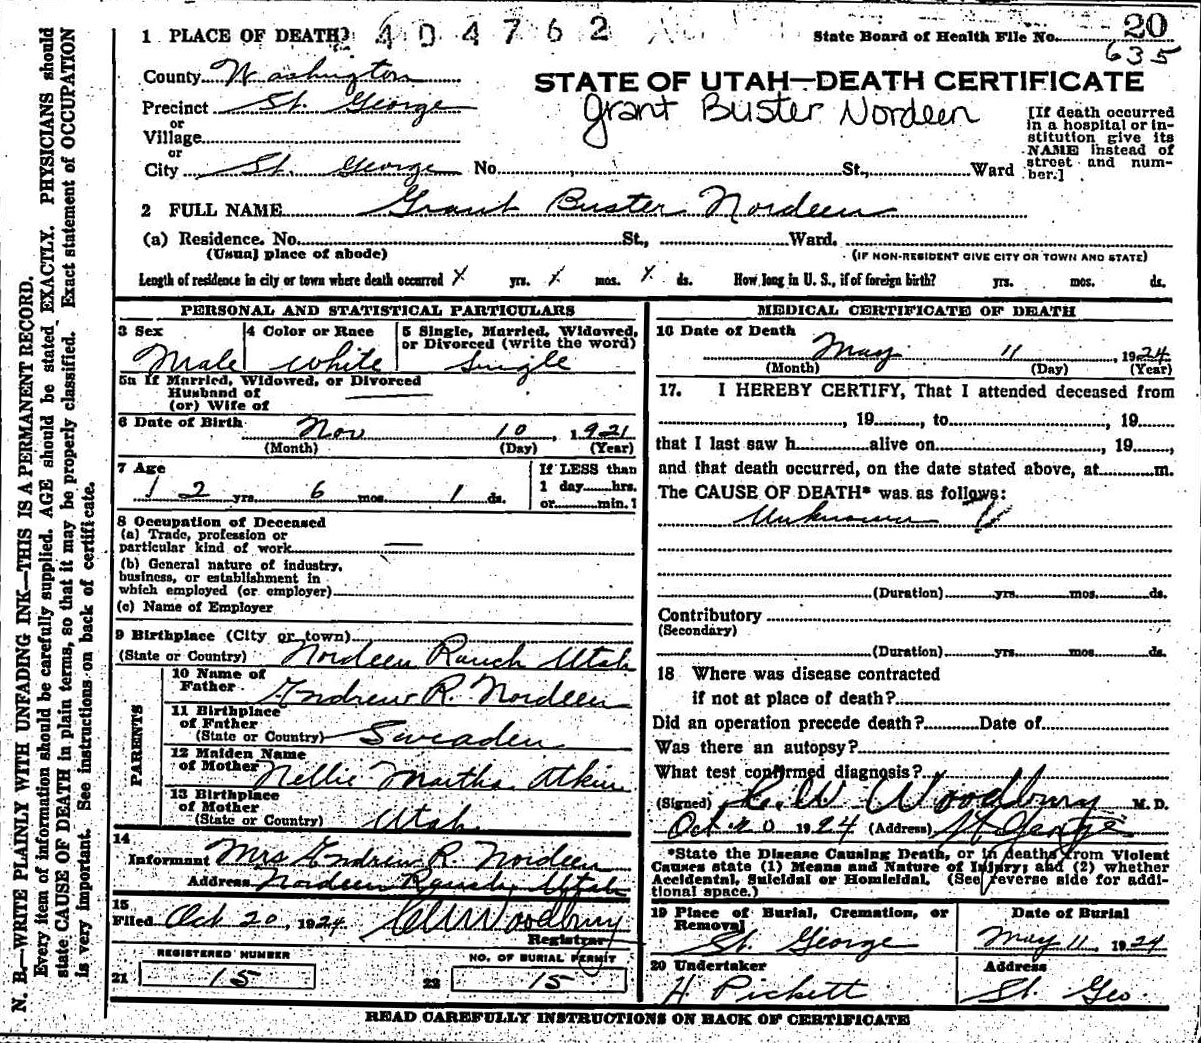 1 PLACE OF DEATH 404762 State Board of Health File No. 20
635
County Washington
STATE OF UTAH—DEATH CERTIFICATE
Precinct St. George
Grant Buster Nordeen
or
Village
or
City St. George No. St., Ward
[If death occurred
in a hospital or in-
stitution give its
NAME instead of
street and num-
ber.]
2 FULL NAME Grant Buster Nordeen
(a) Residence. No. St., Ward.
(Usual place of abode) (IF NON-RESIDENT GIVE CITY OR TOWN AND STATE)
Length of residence in city or town where death occurred X yrs. X mos. X ds. How long in U. S., if of foreign birth? yrs. mos. ds.
PERSONAL AND STATISTICAL PARTICULARS
3 Sex 4 Color or Race 5 Single, Married, Widowed,
or Divorced (write the word)
Male White Single
5a If Married, Widowed, or Divorced
Husband of
(or) Wife of
6 Date of Birth Nov 10, 1921
(Month) (Day) (Year)
7 Age
12 yrs. 6 mos. 1 ds.
If LESS than
1 day hrs.
or min.1
8 Occupation of Deceased
(a) Trade, profession or
particular kind of work
(b) General nature of industry,
business, or establishment in
which employed (or employer)
(c) Name of Employer
9 Birthplace (City or town)
(State or Country) Nordeen Ranch Utah
PARENTS
10 Name of
Father Andrew R. Nordeen
11 Birthplace
of Father
(State or Country) Sweaden
12 Maiden Name
of Mother Nellie Martha Atkin
13 Birthplace
of Mother
(State or Country) Utah
14
Informant Mrs Andrew R. Nordeen
Address Nordeen Ranch, Utah
15
Filed Oct 20, 1924 C W Woodbury
Registrar
REGISTERED NUMBER NO. OF BURIAL PERMIT
21 15 22 15
MEDICAL CERTIFICATE OF DEATH
16 Date of Death
May 11, 1924
(Month) (Day) (Year)
17. I HEREBY CERTIFY, That I attended deceased from
, 19 , to , 19
that I last saw h alive on , 19 ,
and that death occurred, on the date stated above, at m.
The CAUSE OF DEATH* was as follows:
Unknown
(Duration) yrs. mos. ds.
Contributory
(Secondary)
(Duration) yrs. mos. ds.
18 Where was disease contracted
if not at place of death?
Did an operation precede death? Date of
Was there an autopsy?
What test confirmed diagnosis?
(Signed) C. W Woodbury M. D.
Oct 20 1924 (Address) St George
*State the Disease Causing Death, or in deaths from Violent
Causes state (1) Means and Nature of Injury; and (2) whether
Accidental, Suicidal or Homicidal. (See reverse side for addi-
tional space.)
19 Place of Burial, Cremation, or
Removal
St. George
Date of Burial
May 11, 1924
20 Undertaker Address
H Pickett St. Geo
READ CAREFULLY INSTRUCTIONS ON BACK OF CERTIFICATE
N. B.—WRITE PLAINLY WITH UNFADING INK—THIS IS A PERMANENT RECORD.
Every item of information should be carefully supplied. AGE should be stated EXACTLY. PHYSICIANS should
state CAUSE OF DEATH in plain terms, so that it may be properly classified. Exact statement of OCCUPATION
is very important. See instructions on back of certificate.